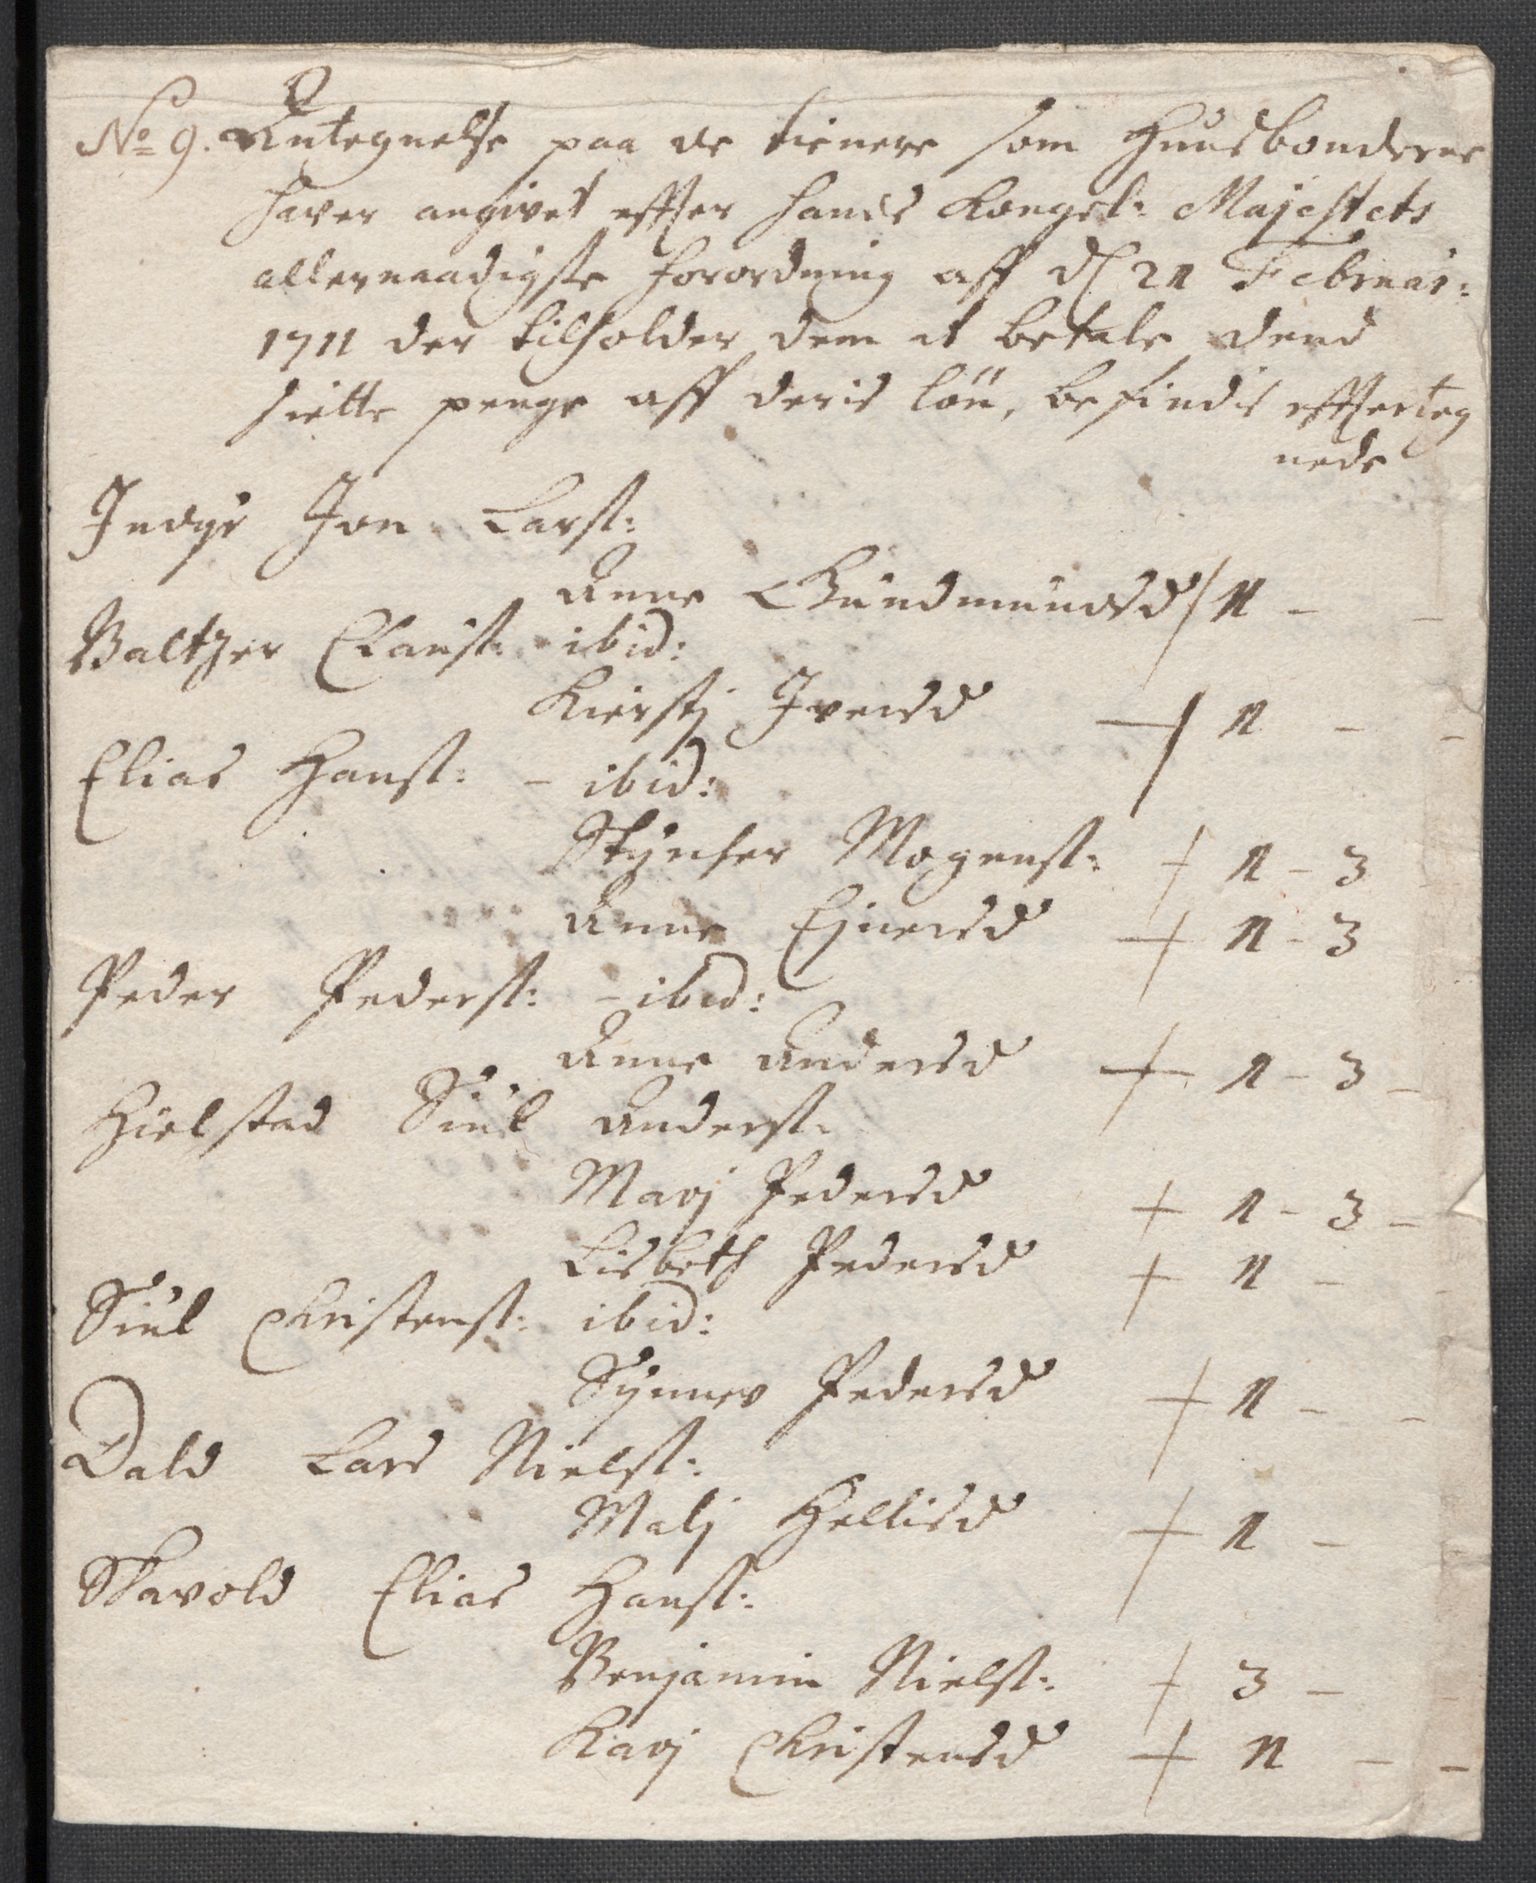 No 9. Antegnelse paa de tienere som Huusbonderne
haver angivet effter hands Kongel: Majestets
allernaadigste forordning aff d 21 Februar:
1711 der tilholder dem at betale dend
siette penge aff deris løn, befindis effterteg
nede
Indyr Jon Larst:
Anne Gundmundsd / 11 -
Baltzer Claust: ibid:
Kiersti Iversd + 11 - -
Elias Hanst: - ibid:
Mogenst: + 11 - 3
Anne Ejnersd + 11 - 3
Peder Pederst: - ibid:
Anne Andersd + 11 - 3 -
Hielstad Siul Anderst:
Marj Pedersd + 11 - 3 -
Lisbeth Pedersd + 11 -
Siul Christenst: ibid:
Synnev Pedersd + 11 - -
Dald Lars Nielst:
Malj Hellisd + 11 -
Skavold Elias Hanst:
Benjamin Nielst: + 3 -
Karj Christensd + 11 - -